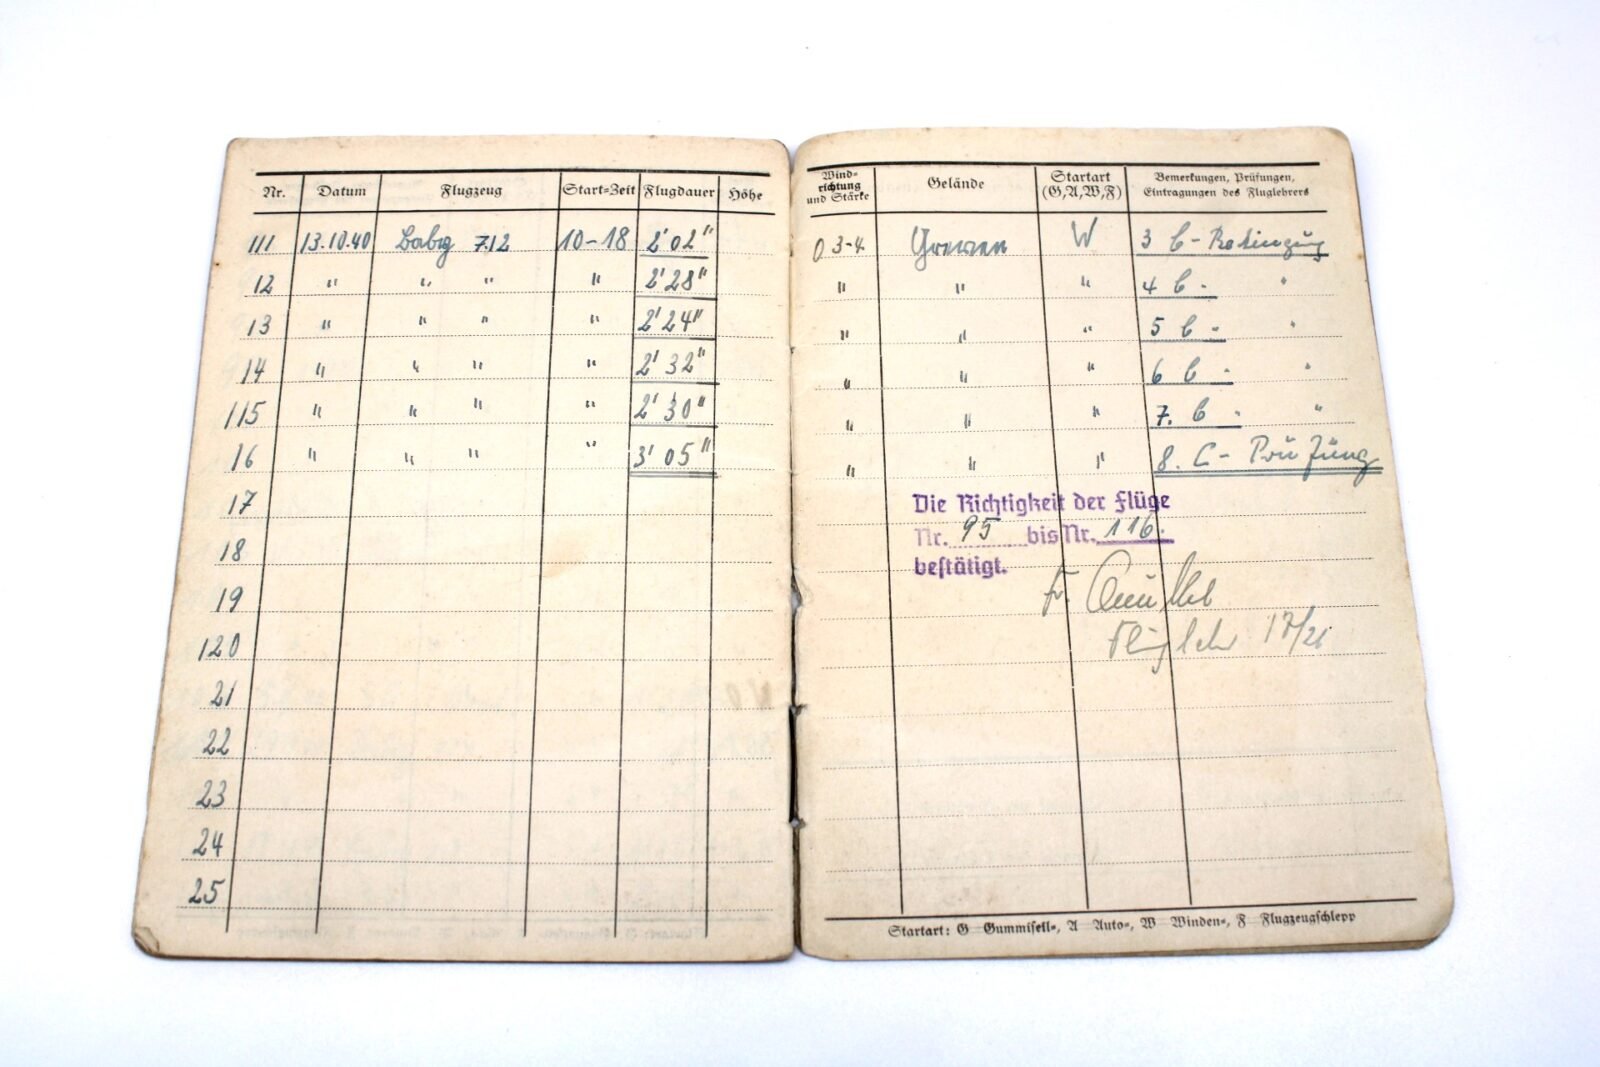 Nr. Datum Flugzeug Start-Zeit Flugdauer Höhe
111 13.10.40 Baby 7.12 10-18 2' 02"
12 " " " " 2' 28"
13 " " " " 2' 24"
14 " " " " 2' 32"
115 " " " " 2' 30"
16 " " " " 3' 05"
17
18
19
120
21
22
23
24
25
Wind-richtung und Stärke Gelände Startart (G,A,W,F) Bemerkungen, Prüfungen, Eintragungen des Fluglehrers
O 3-4 Greven W 3 C-Bedingung
" " " 4 C- "
" " " 5 C- "
" " " 6 C- "
" " " 7. C- "
" " " 8. C-Prüfung
Die Richtigkeit der Flüge
Nr. 95 bis Nr. 116.
bestätigt.
Fr.
Fluglehr 17/21
Startart: G Gummiseil-, A Auto-, W Winden-, F Flugzeugschlepp